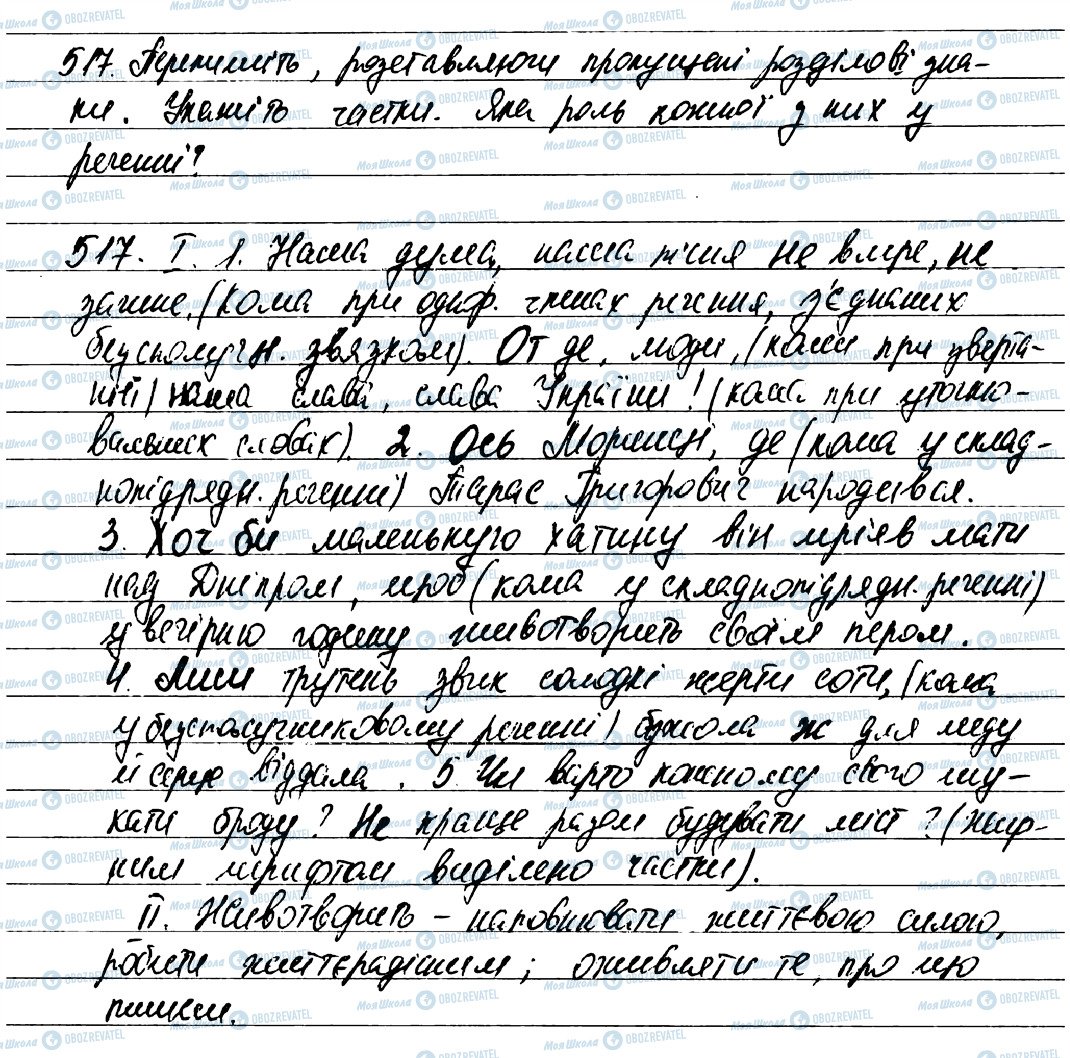 517. Перепишіть, розставляючи пропущені розділові зна-
ки. Укажіть частки. Яка роль кожної з них у
реченні?
517. I. 1. Наша дума, наша пісня не вмре, не
загине, (кома при однор. членах речення, з'єднаних
безсполучн. звязком). От де, люди, (коми при зверта-
нні) наша слава, слава України! (кома при уточню-
вальних словах). 2. Ось Моринці, де (кома у склад-
нопідрядн. реченні) Тарас Григорович народився.
3. Хоч би маленькую хатину він мріяв мати
над Дніпром, щоб (кома у складнопідрядн. реченні)
у вечірню годину животворить своїм пером.
4. Лиш трутень звик солодкі жерти соти, (кома
у безсполучниковому реченні) бджола ж для меду
й серце віддала. 5 Чи варто кожному свого шу-
кати броду? Не краще разом будувати міст? (жир-
ним шрифтом виділено частки).
II. Животворить – наповнювати життєвою силою,
робити життєрадісним; оживляти те, про що
пишеш.